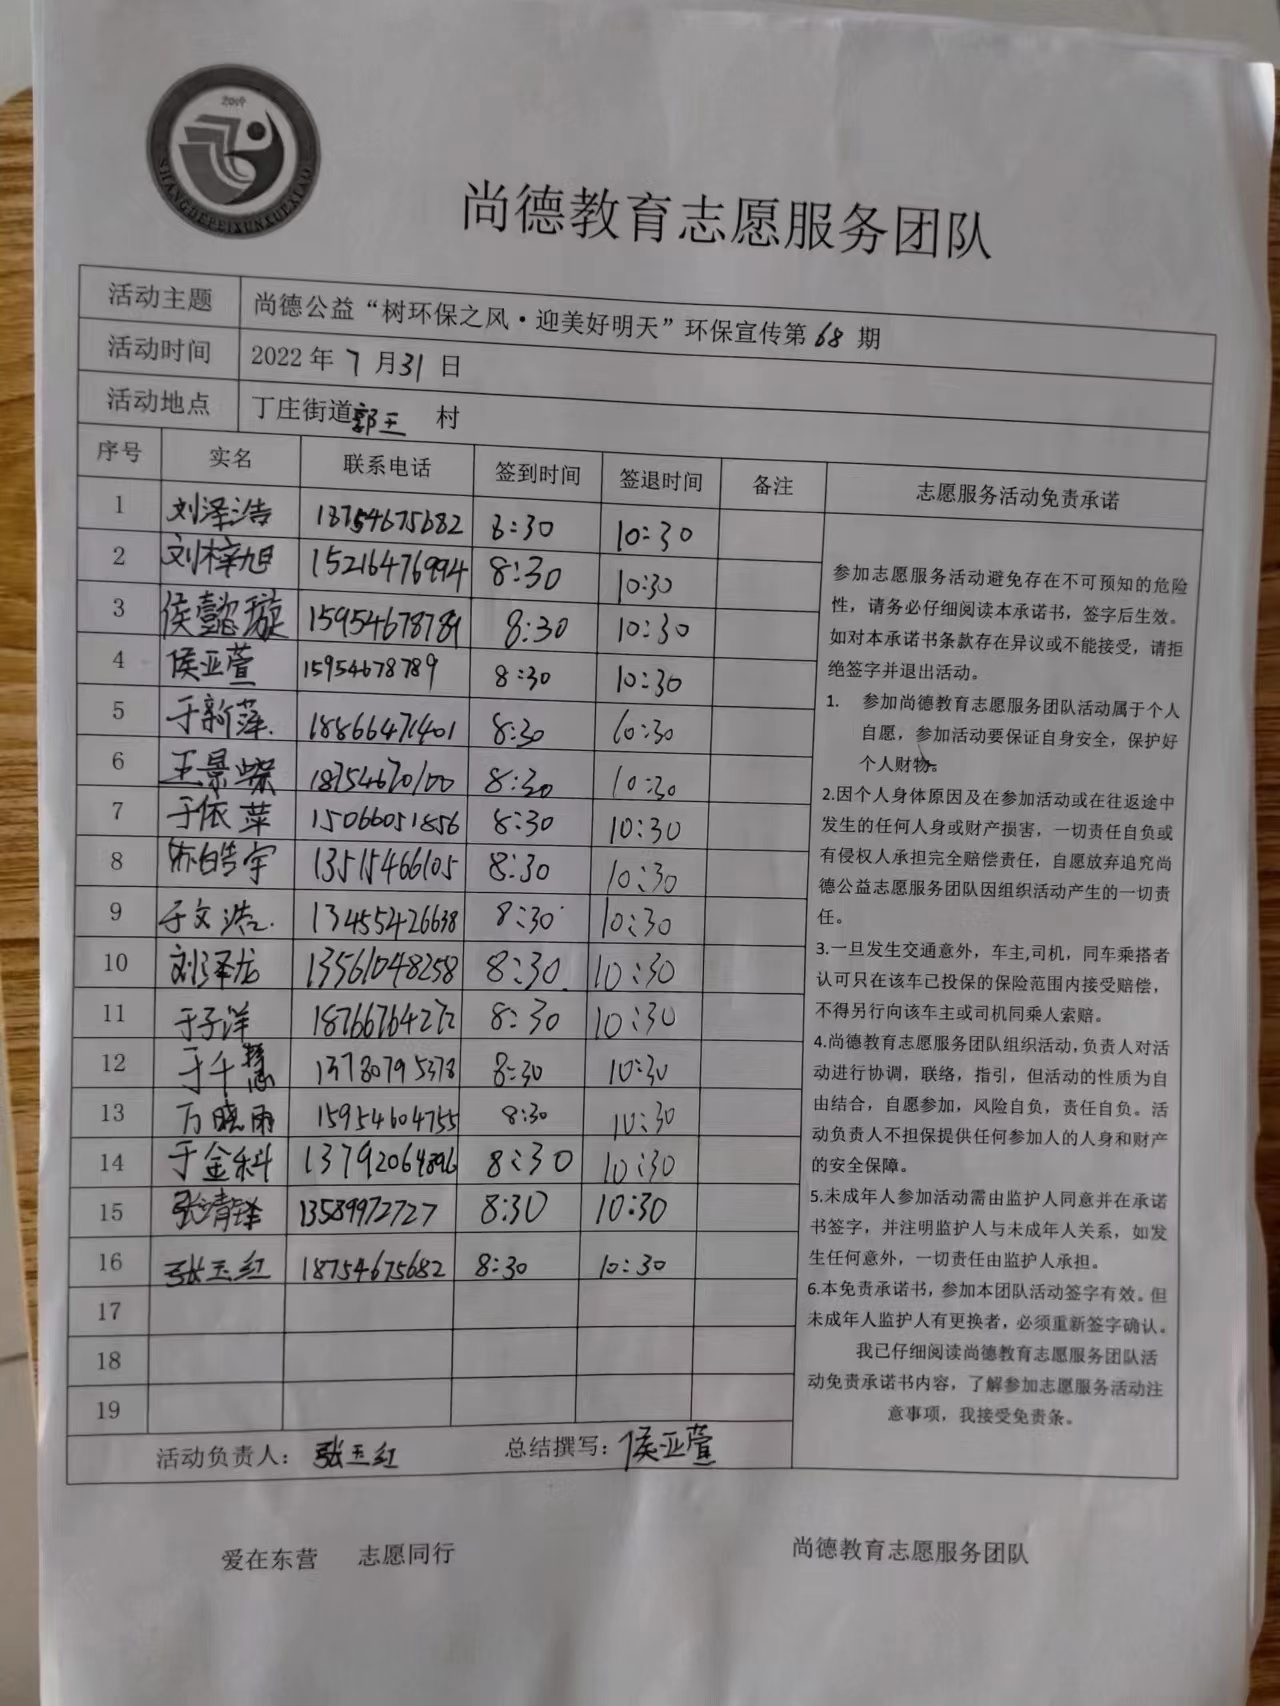 2019
SHANGDEPEIXUNXUEXIAO
尚德教育志愿服务团队
活动主题 尚德公益“树环保之风·迎美好明天”环保宣传第68期
活动时间 2022年7月31日
活动地点 丁庄街道郭王 村
序号 实名 联系电话 签到时间 签退时间 备注 志愿服务活动免责承诺
1 刘泽浩 13754675682 8:30 10:30
2 刘梓旭 15216476994 8:30 10:30
3 侯懿璇 15954678789 8:30 10:30
4 侯亚萱 15954678789 8:30 10:30
5 于新萍 18866471401 8:30 10:30
6 王景 18754670100 8:30 10:30
7 于依萍 15066051856 8:30 10:30
8 皓宇 13515466105 8:30 10:30
9 于文浩 13455426638 8:30 10:30
10 刘泽龙 13561048258 8:30 10:30
11 于子洋 18766764272 8:30 10:30
12 于千慧 13780795378 8:30 10:30
13 万晓雨 15954604755 8:30 10:30
14 于金科 13792064896 8:30 10:30
15 张靖锋 13589972727 8:30 10:30
16 张玉红 18754675682 8:30 10:30
17
18
19
参加志愿服务活动避免存在不可预知的危险
性，请务必仔细阅读本承诺书，签字后生效。
如对本承诺书条款存在异议或不能接受，请拒
绝签字并退出活动。
1. 参加尚德教育志愿服务团队活动属于个人
自愿，参加活动要保证自身安全，保护好
个人财物。
2.因个人身体原因及在参加活动或在往返途中
发生的任何人身或财产损害，一切责任自负或
有侵权人承担完全赔偿责任，自愿放弃追究尚
德公益志愿服务团队因组织活动产生的一切责
任。
3.一旦发生交通意外，车主,司机，同车乘搭者
认可只在该车已投保的保险范围内接受赔偿，
不得另行向该车主或司机同乘人索赔。
4.尚德教育志愿服务团队组织活动，负责人对活
动进行协调，联络，指引，但活动的性质为自
由结合，自愿参加，风险自负，责任自负。活
动负责人不担保提供任何参加人的人身和财产
的安全保障。
5.未成年人参加活动需由监护人同意并在承诺
书签字，并注明监护人与未成年人关系，如发
生任何意外，一切责任由监护人承担。
6.本免责承诺书，参加本团队活动签字有效。但
未成年人监护人有更换者，必须重新签字确认。
我已仔细阅读尚德教育志愿服务团队活
动免责承诺书内容，了解参加志愿服务活动注
意事项，我接受免责条。
活动负责人：张玉红 总结撰写：侯亚萱
爱在东营 志愿同行 尚德教育志愿服务团队